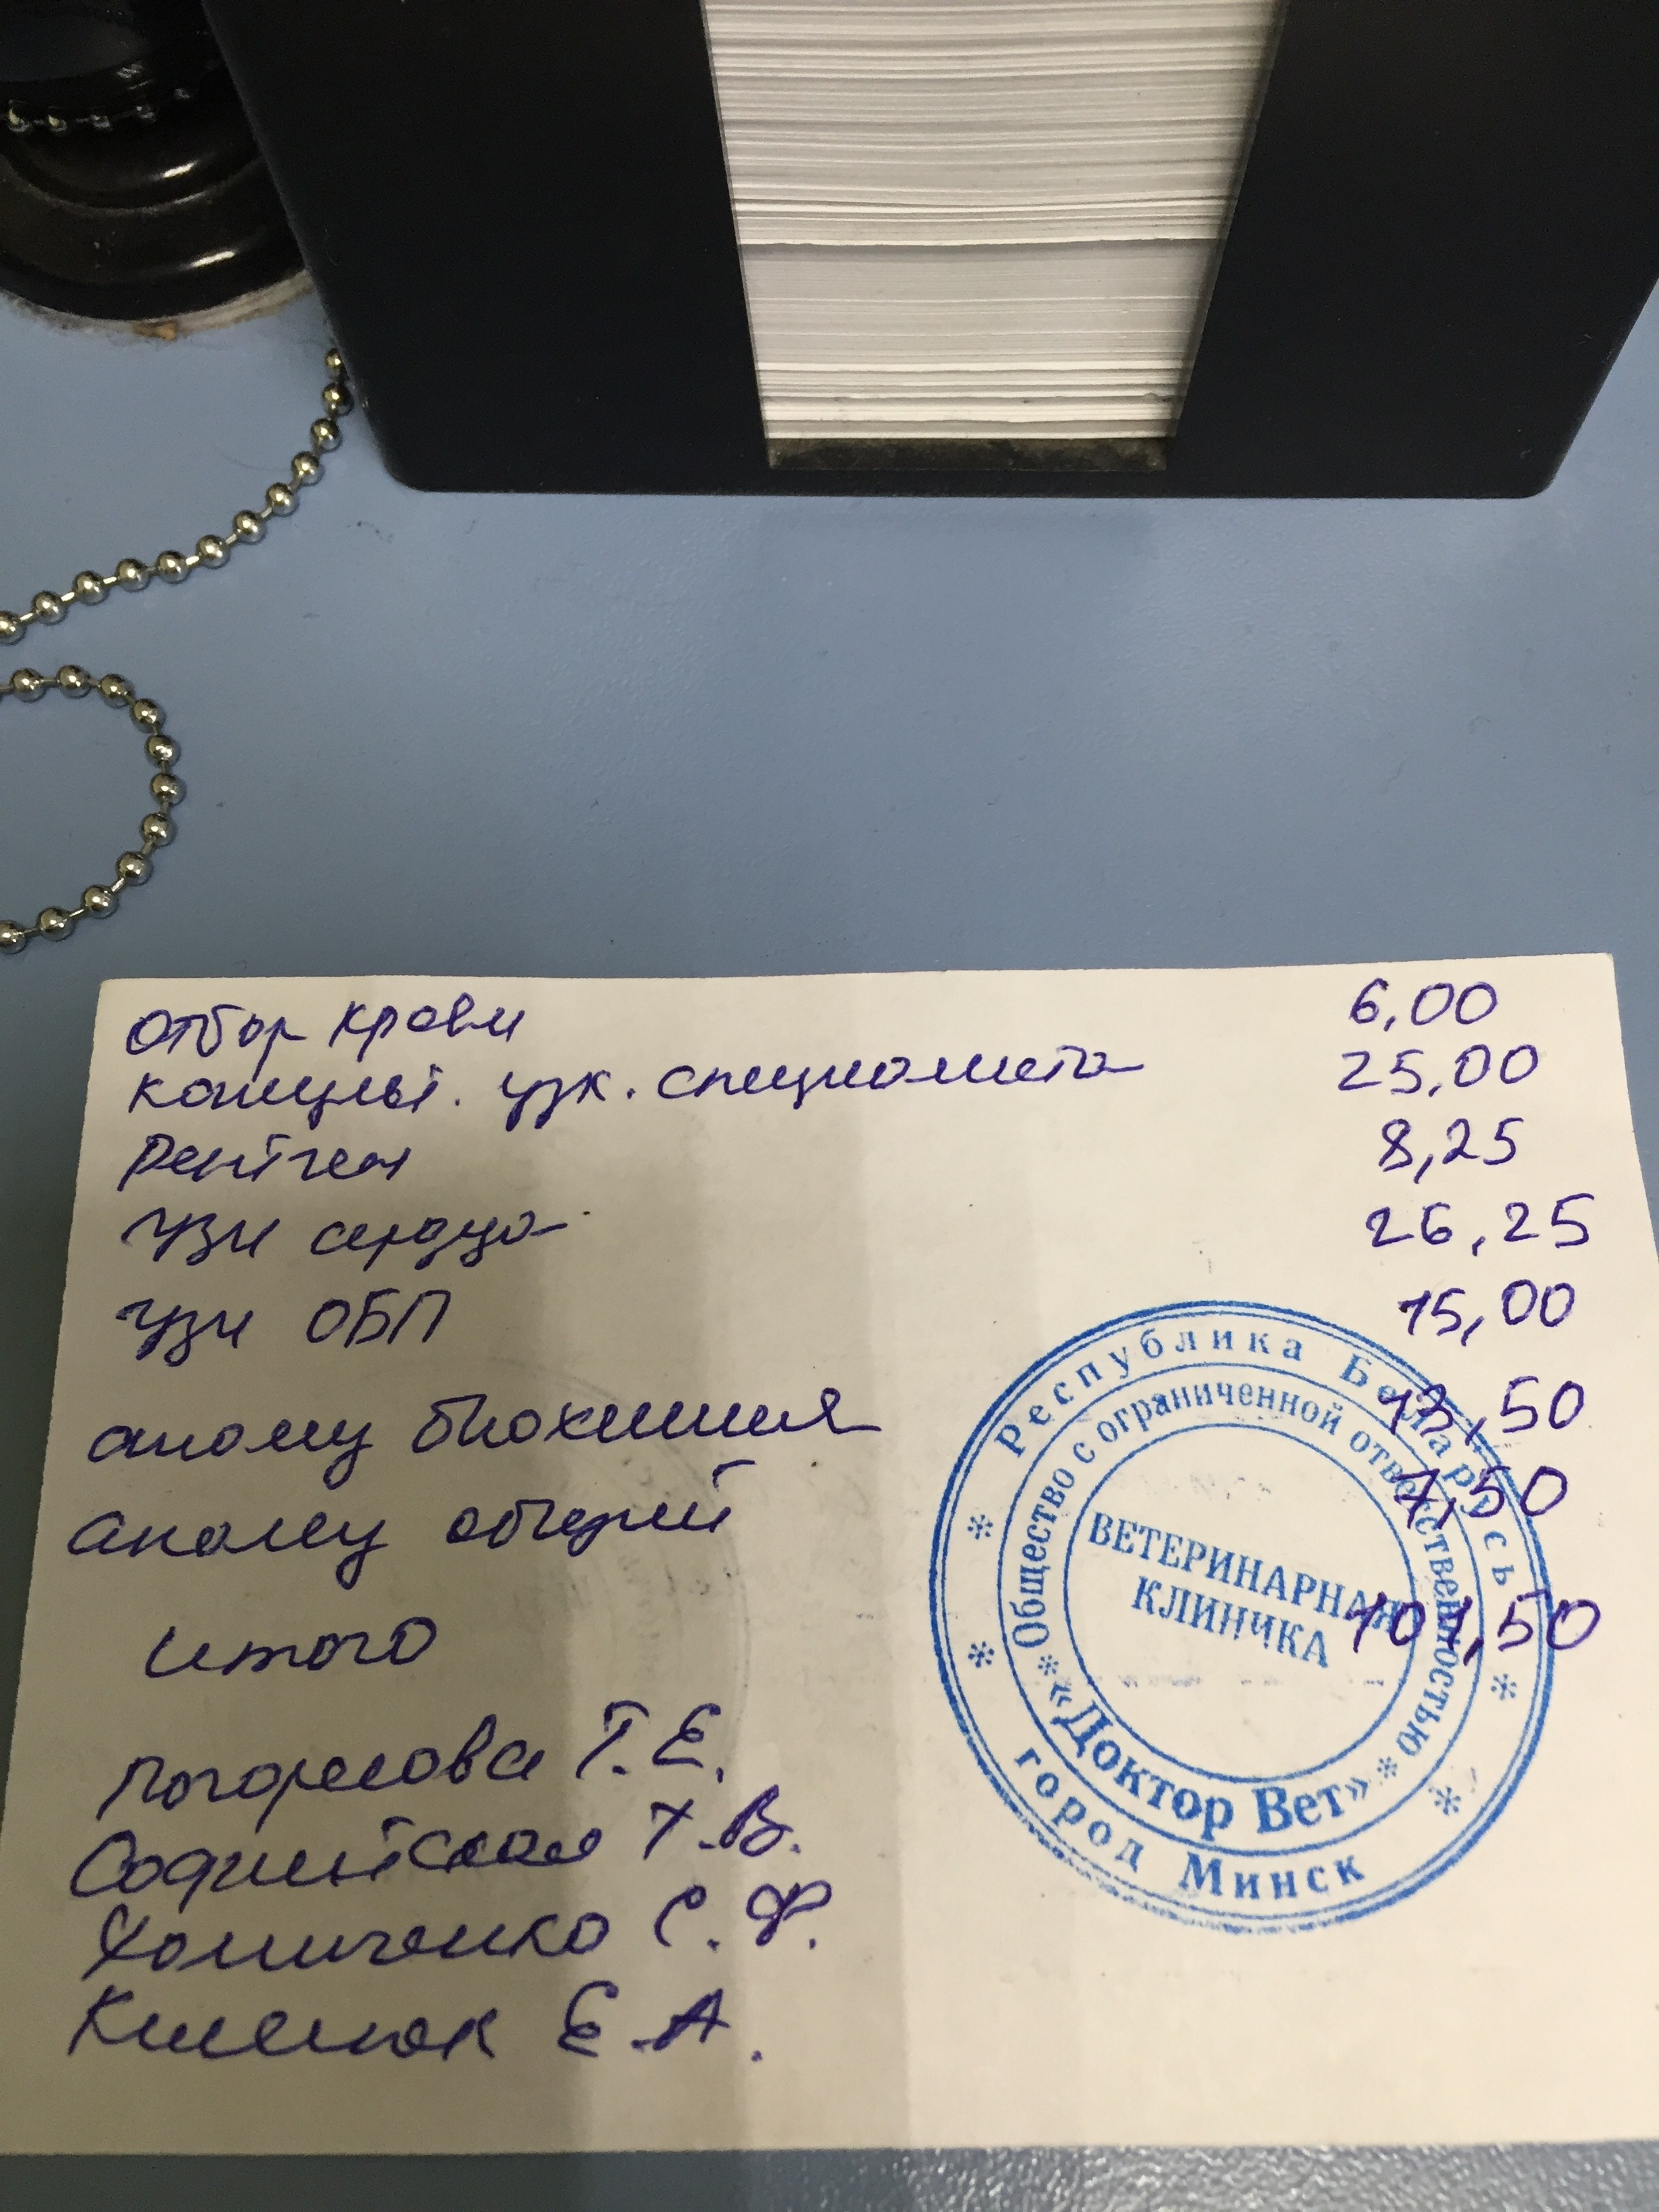 Отбор крови 6,00
консульт. узк. специалиста 25,00
Рентген 8,25
узи сердца 26,25
узи ОБП 15,00
анализ биохимия 13,50
анализ общий 7,50
итого 101,50
Погорелова Т.Е.
Софинская Т.В.
Хомиченко С.Ф.
Кленюк Е.А.
Республика Беларусь
Общество с ограниченной ответственностью
ВЕТЕРИНАРНАЯ
КЛИНИКА
«Доктор Вет»
город Минск